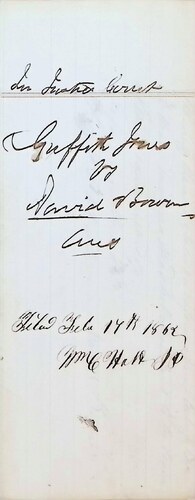 In Justice Court
Griffith Jones
vs
David Bowen
Ans
Filed Feb 17th 1862
Wm C Hatt J P